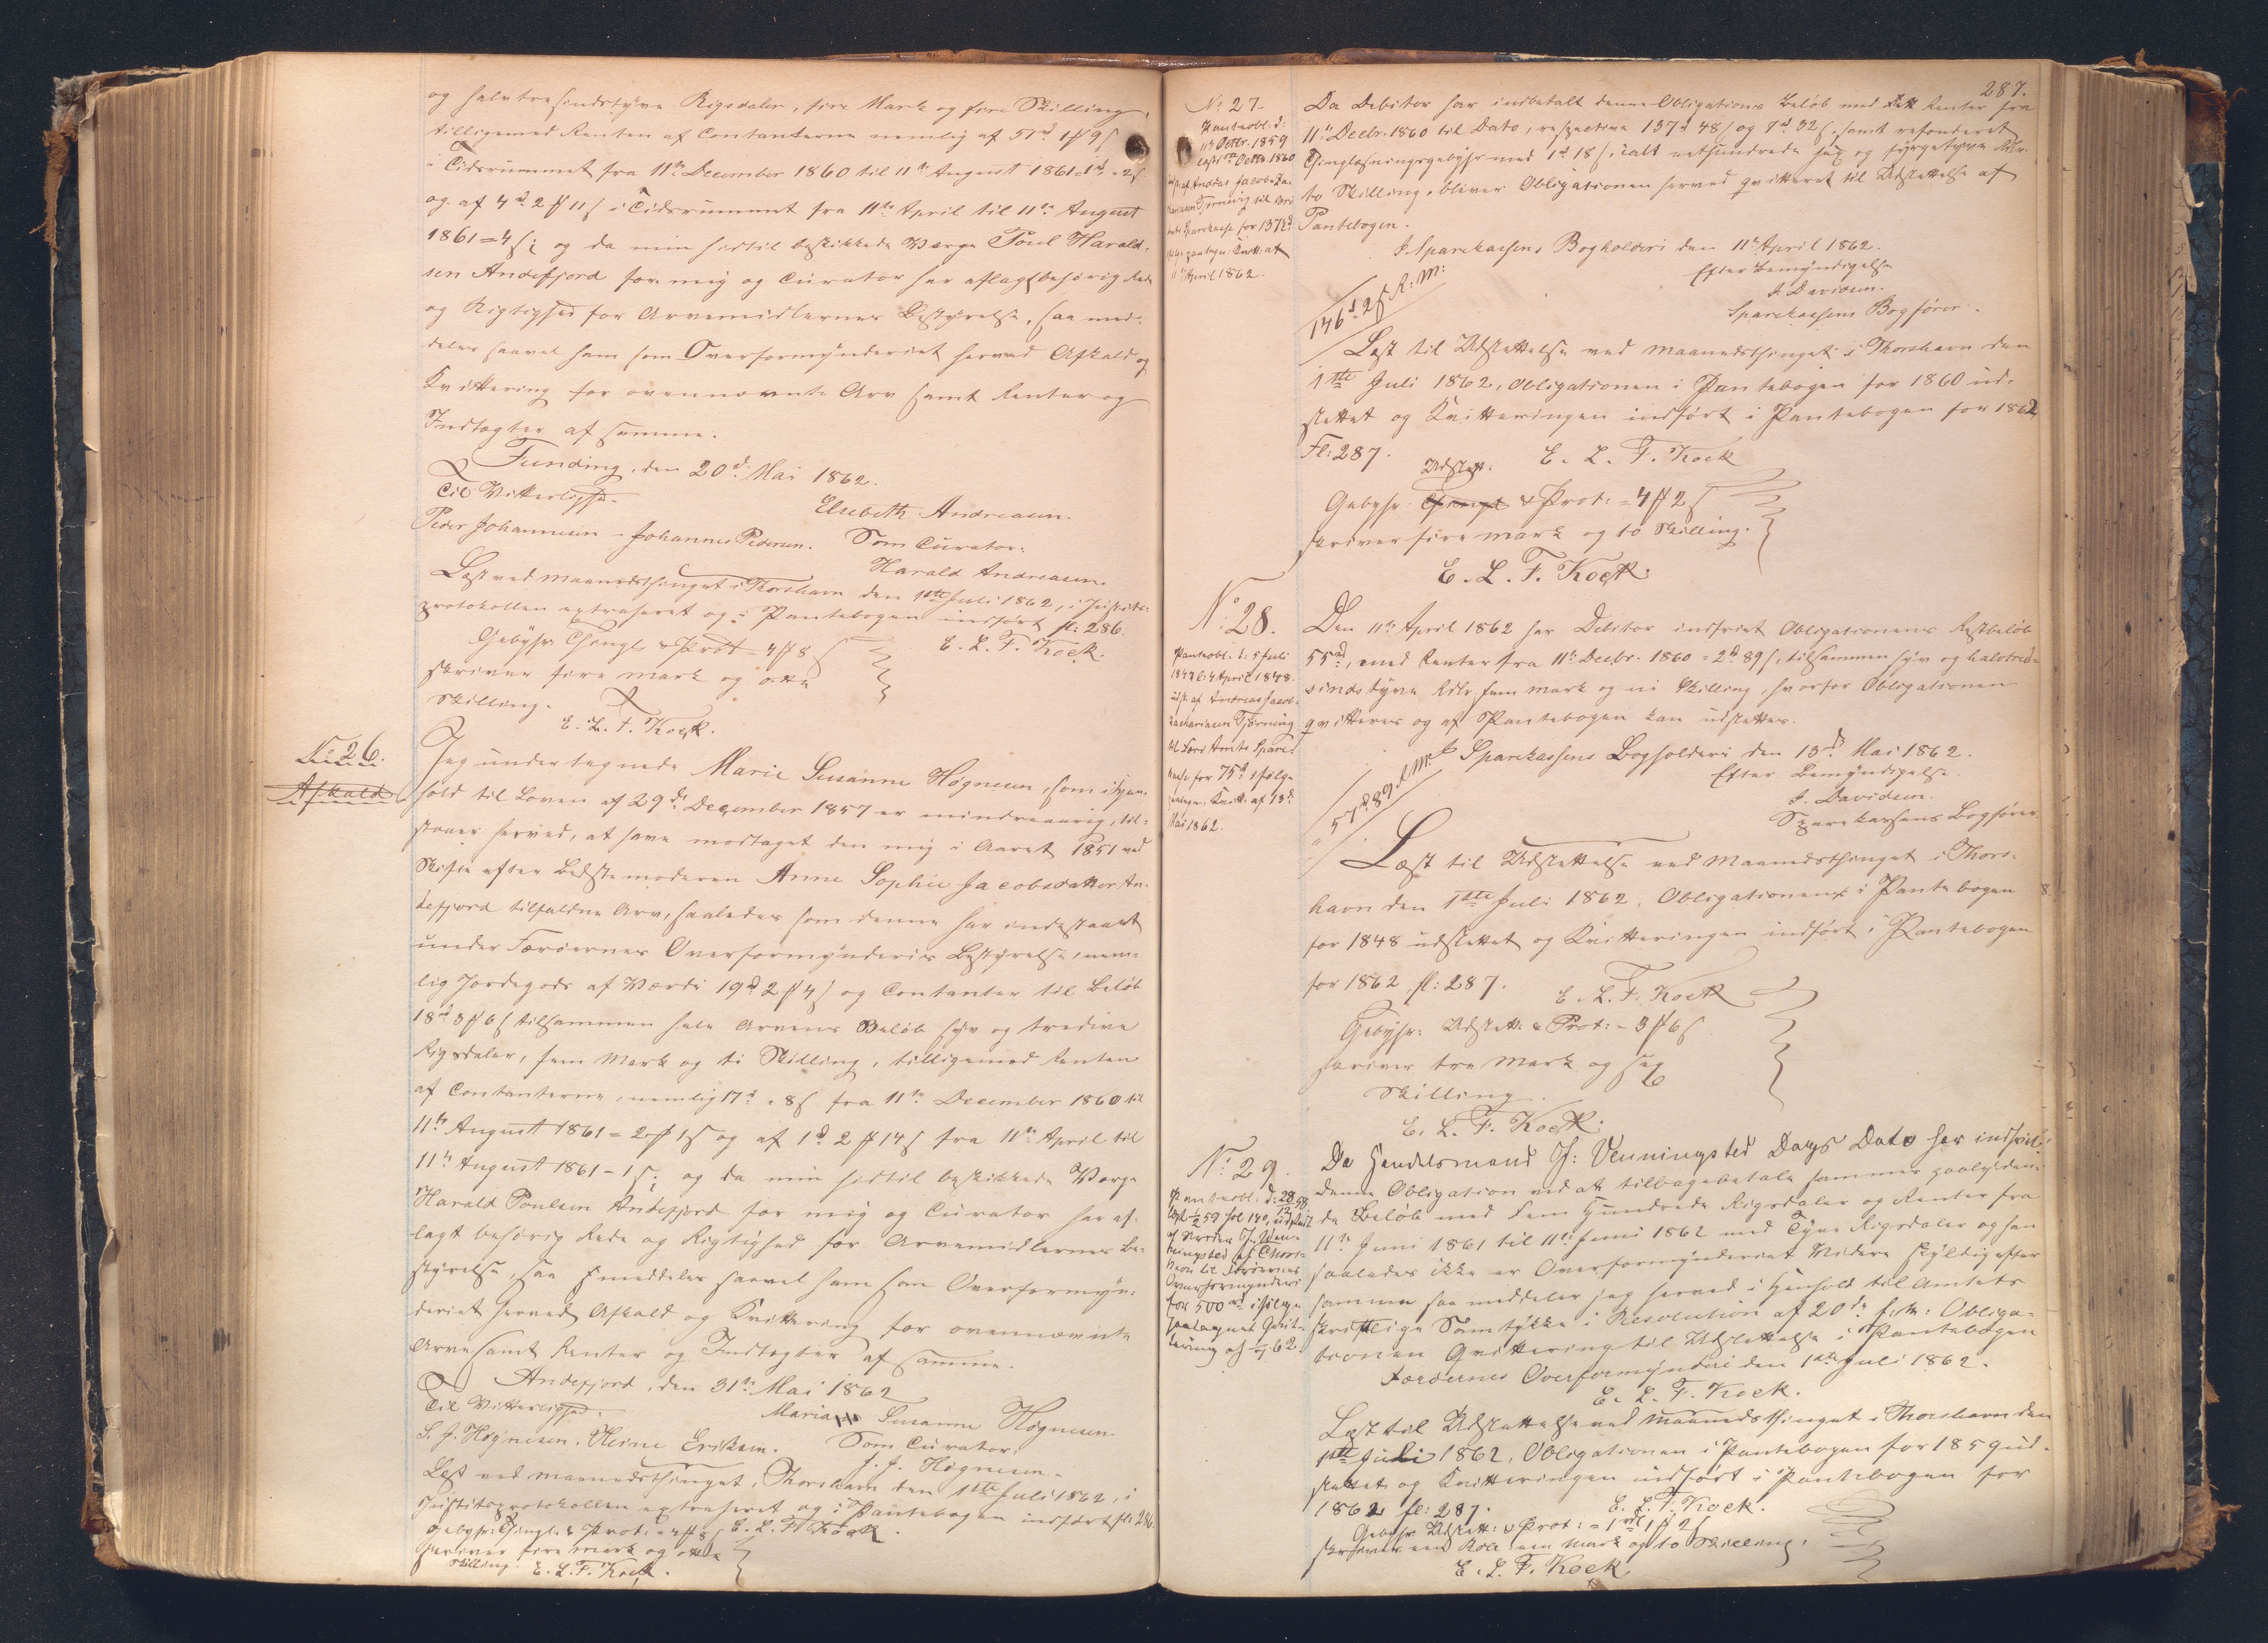 og halvtresindstyve Rigsdaler, fire Mark og fire Skilling,
tilligemed Renten af Contanterne nemlig af 51rd 1 ß 9 s
i Tidsrummet fra 11te December 1860 til 11te August 1861 = 1rd " 2 s
og af 4rd 2 ß 11 s i Tidsrummet fra 11te April til 11te August
1861 = 4 s; og da min hidtil beskikkede Værge Poul Harald-
sen Andefjord for mig og Curator har aflagt behørig Rede
og Rigtighed for Arvemidlernes Bestyrelse, saa med-
deles saavel ham som Overformynderiet herved Afkald og
Kvittering for ovennævnte Arv samt Renter og
Indtægter af samme.
Funding, den 20de Mai 1862.
Til Vitterlighed.
Elsebeth Andreasen.
Peder Johannesen - Johannes Pedersen. Som Curator:
Harald Andreasen.
Læst ved Maanedsthinget i Thorshavn den 1ste Juli 1862, i Justits-
protokollen extraheret og i Pantebogen indført fl: 286.
E. L. F. Kock.
Gebyhr Thingl. & Prot = 4 ß 8 s
skriver fire Mark og otte
Skilling.
E. L. F. Kock.
No 26.
Afkald
Jeg undertegnede Marie Susanne Høgnesen, som i Hen-
hold til Loven af 29de December 1857 er mindreaarig, til-
staaer herved, at have modtaget den mig i Aaret 1851 ved
Skifte efter Bedstemoderen Anne Sophie Jacobsdatter An-
defjord tilfaldne Arv, saaledes som denne har indestaaet
under Færøernes Overformynderies Bestyrelse, nem-
lig Jordegods af Værdi 19rd 2 ß 4 s og Contanter til Beløb
18rd 3 ß 6 s tilsammen hele Arvens Beløb syv og tredive
Rigsdaler, fem Mark og ti Skilling, tilligemed Renten
af Contanterne, nemlig 17rd " 8 s fra 11te December 1860 til
11te August 1861 = 2 ß 1 s og af 1rd 2 ß 14 s fra 11te April til
11te August 1861 - 1 s; og da min hidtil beskikkede Værge
Harald Poulsen Andefjord for mig og Curator har af-
lagt behørig Rede og Rigtighed for Arvemidlernes Be-
styrelse, saa meddeles saavel ham som Overformyn-
deriet herved Afkald og Kvittering for ovennævnte
Arv samt Renter og Indtægter af samme.
Andefjord, den 31te Mai 1862
Til Vitterlighed.
Maria Susanne Høgnesen.
S. J. Høgnesen. Heine Eriksen. Som Curator:
J. J. Høgnesen.
Læst ved Maanedsthinget i Thorshavn den 1ste Juli 1862, i
Justitsprotokollen extraheret og i Pantebogen indført fl: 286.
Gebyhr: Thingl. & Prot: = 4 ß 8 s E. L. F. Kock.
skriver fire Mark og otte
Skilling. E. L. F. Kock.
287.
No 27
Panteobl. d:
11te Octbr. 1859
Octbr 1860
af Andreas Jacob Za-
chariasen Tjørnevig til
Sparekasse for 137rd
Kvitt: af
11te April 1862.
Da Debitor har indbetalt denne Obligations Beløb med Renter fra
11te Decbr. 1860 til Dato, respective 137rd 48 s og 7rd 32 s, samt refunderet
Thinglæsningsgebyhr med 1rd 18 s, ialt eethundrede sex og fyrgetyve Rdlr.
to Skilling, bliver Obligationen herved qvitteret til Udslettelse af
Pantebogen.
I Sparekassens Bogholderi den 11te April 1862.
Efter Bemyndigelse
J. Davidsen.
Sparekassens Bogfører.
146rd 2 s R: M:
Læst til Udslettelse ved Maanedsthinget i Thorshavn den
1ste Juli 1862, Obligationen i Pantebogen for 1860 ud-
slettet og Kvitteringen indført i Pantebogen for 1862
Fl: 287.
E. L. F. Kock
Udslett:
Gebyhr Thingl & Prot: = 4 ß 2 s
skriver fire Mark og to Skilling.
E. L. F. Kock.
No 28.
Panteobl. d: 5 Juli
1847 l: 4 April 1848
udst. af Andreas Jacob
Zachariasen Tjørnevig
til Færø Amts Spare-
kasse for 75rd ifølge
Kvitt: af 13de
Mai 1862.
Den 11te April 1862 har Debitor indfriet Obligationens Restbeløb
55rd, med Renter fra 11te Decbr. 1860 = 2rd 89 s, tilsammen syv og halvtred-
sindstyve Rdlr. fem Mark og ni Skilling, hvorfor Obligationen
qvitteres og af Pantebogen kan udslettes.
I Sparekassens Bogholderi den 13de Mai 1862.
Efter Bemyndigelse
J. Davidsen.
Sparekassens Bogfører.
57rd 89 s R: M:
Læst til Udslettelse ved Maanedsthinget i Thors-
havn den 1ste Juli 1862, Obligationen i Pantebogen
for 1848 udslettet og Kvitteringen indført i Pantebogen
for 1862 fl: 287.
E. L. F. Kock
Gebyhr: Udslett: & Prot: - 3 ß 6 s
skriver tre Mark og sex
Skilling.
E. L. F. Kock.
No 29.
Panteobl: d: 28/12 58
læst 1/2 59 fol 140, udstædt
af Jfr: Wen-
ningsted af Thors-
havn til Færøernes
Overformynderi
for 500rd ifølge
paategnet Qvit-
tering af 1/7 62
Da Handelsmand H: Venningsted Dags Dato har indfriet
denne Obligation ved at tilbagebetale sammes paalyden-
de Beløb med Fem Hundrede Rigsdaler og Renter fra
11te Juni 1861 til 11te Juni 1862 med Tyve Rigsdaler og han
saaledes ikke er Overformynderiet Videre skyldig efter
samme saa meddeler jeg herved i Henhold til Amtets
skriftlige Samtykke i Resolution af 20de f: M: Obliga-
tionen Qvittering til Udslettelse i Pantebogen
Færøernes Overformynderi den 1ste Juli 1862.
E. L. F. Kock.
Læst til Udslettelse ved Maanedsthinget i Thorshavn den
1ste Juli 1862, Obligationen i Pantebogen for 1859 ud-
slettet og Kvitteringen indført i Pantebogen for
1862 fl: 287.
E. L. F. Kock.
Gebyhr Udslett: & Prot: = 1rd 1 ß 2 s
skriver een Rdlr een Mark og to Skilling.
E. L. F. Kock.